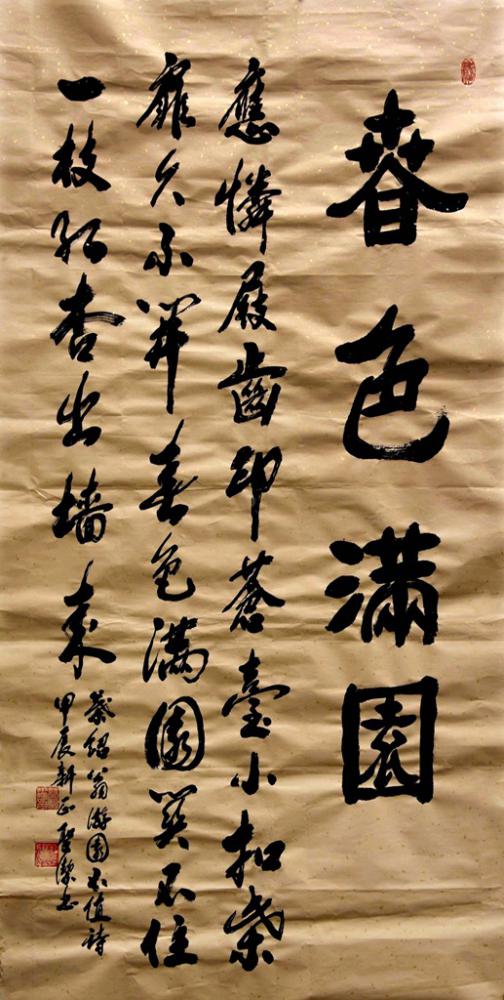 春色滿園
應憐屐齒印蒼臺小扣柴
扉久不開春色滿園關不住
一枝紅杏出墻來
葉紹翁游園不值詩
甲辰新正聖潔書